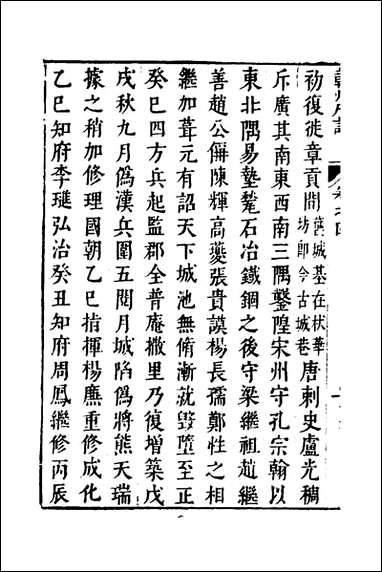 初復徙章貢間舊城基在伏華坊即今古城巷唐刺史盧光稠
斥廣其南東西南三隅鑿隍宋州守孔宗翰以
東北隅易墊甃石冶鐵錮之後守梁繼祖趙繼
善趙公偋陳輝高夔張貴謨楊長孺鄭性之相
繼加葺元有詔天下城池無俻漸就毀墮至正
癸巳四方兵起監郡全普庵撒里乃復增築戊
戌秋九月為漢兵圍五閱月城陷偽將熊天瑞
據之稍加修理國朝乙巳指揮楊廉重修成化
乙巳知府李璡弘治癸丑知府周鳳繼修丙辰